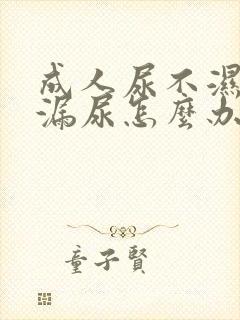 成人尿不濕
漏尿怎麼办
童子賢